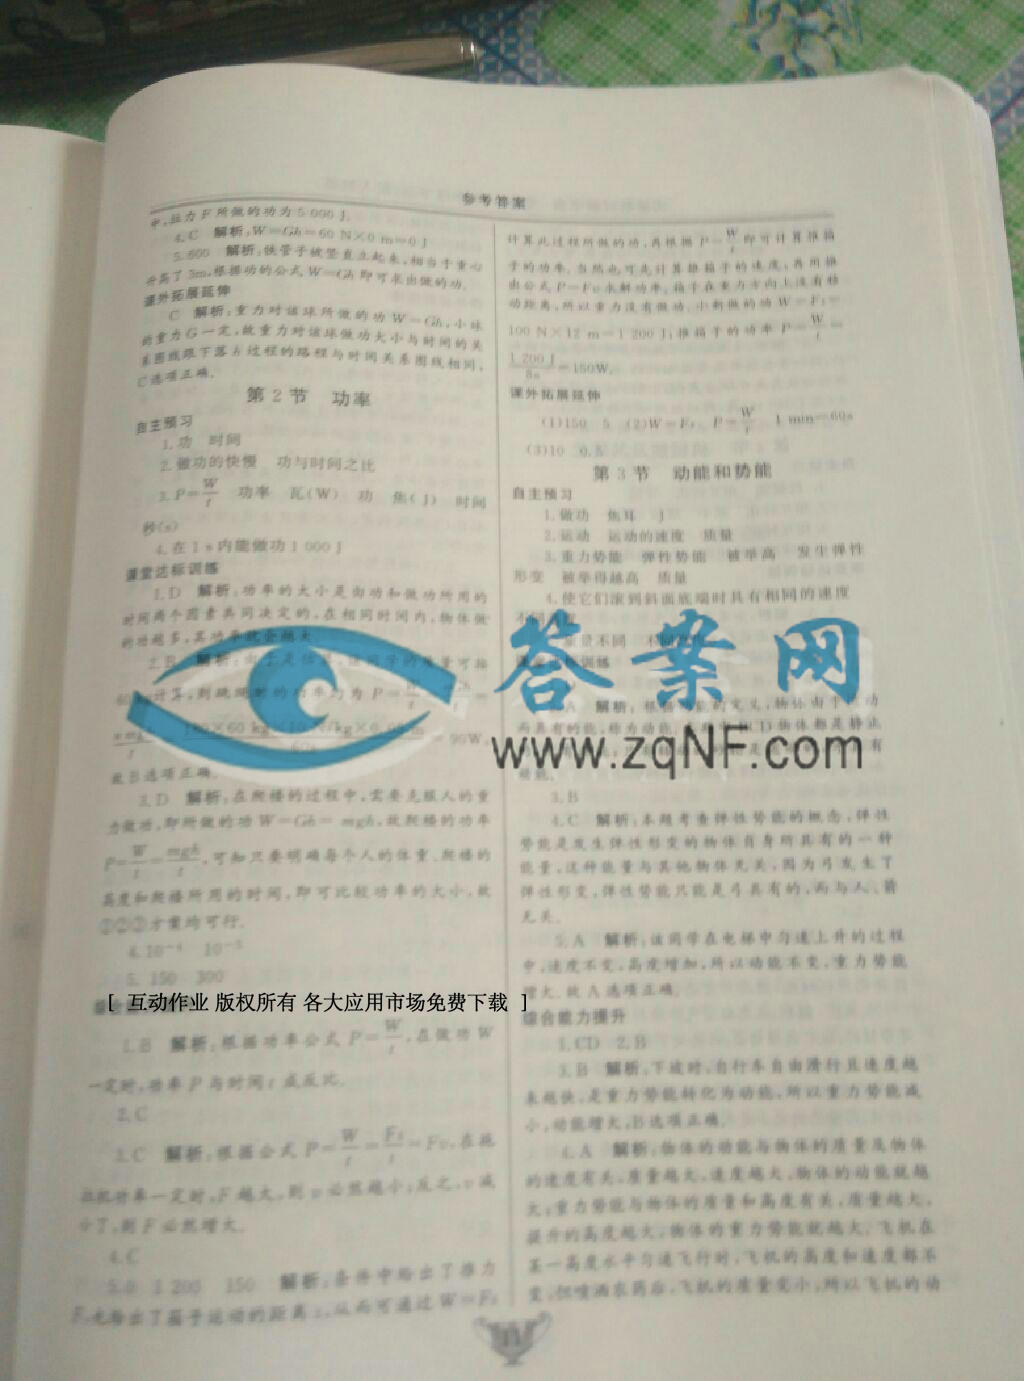 参考答案
中,拉力F所做的功为5 000 J.
4.C 解析:W=Gh=60 N×0 m=0 J
5.600 解析:铁管子被竖直立起来,相当于重心
升高了3m,根据功的公式W=Gh即可求出做的功.
课外拓展延伸
C 解析:重力对该球所做的功W=Gh,小球
的重力G一定,故重力对该球做功大小与时间的关
系图线跟下落h过程的路程与时间关系图线相同,
C选项正确.
第2节 功率
自主预习
1.功 时间
2.做功的快慢 功与时间之比
3.P=W/t 功率 瓦(W) 功 焦(J) 时间
秒(s)
4.在1 s内能做功1 000 J
课堂达标训练
1.D 解析:功率的大小是由功和做功所用的
时间两个因素共同决定的,在相同时间内,物体做
的功越多,其功率就会越大
2.B 解析:
计算,则跳绳时的功率约为P=
=90W,
故B选项正确.
3.D 解析:在爬楼的过程中,需要克服人的重
力做功,即所做的功W=Gh=mgh,故爬楼的功率
P=W/t=mgh/t,可知只要明确每个人的体重、爬楼的
高度和爬楼所用的时间,即可比较功率的大小,故
①②③方案均可行.
4.10⁻⁴ 10⁻³
5.150 300
[ 互动作业 版权所有 各大应用市场免费下载 ]
1.B 解析:根据功率公式P=W/t,在做功W
一定时,功率P与时间t成反比.
2.C
3.C 解析:根据公式P=W/t=Fs/t=Fv,在拖
拉机功率一定时,F越大,则v必然越小;反之,v减
小了,则F必然增大.
4.C
5.0 1 200 150 解析:条件中给出了推力
F,也给出了箱子运动的距离s,从而可通过W=Fs
计算此过程所做的功,再根据P=W/t即可计算推箱
子的功率.当然也可先计算推箱子的速度,再用推
出公式P=Fv求解功率.箱子在重力方向上没有移
动距离,所以重力没有做功.小刺做的功W=Fs=
100 N×12 m=1 200 J;推箱子的功率P=W/t=
1 200 J/8s=150W.
课外拓展延伸
(1)150 5 (2)W=Fs P=W/t 1 min=60s
(3)10
第3节 动能和势能
自主预习
1.做功 焦耳 J
2.运动 运动的速度 质量
3.重力势能 弹性势能 被举高 发生弹性
形变 被举得越高 质量
4.使它们滚到斜面底端时具有相同的速度
质量不同
答案网
www.zqNF.com
A 解析:根据动能的定义,物体由于运动
而具有的能,称为动能
动能.
3.B
4.C 解析:本题考查弹性势能的概念,弹性
势能是发生弹性形变的物体自身所具有的一种
能量,这种能量与其他物体无关,因为弓发生了
弹性形变,弹性势能只能是弓具有的,而与人、箭
无关.
5.A 解析:该同学在电梯中匀速上升的过程
中,速度不变,高度增加,所以动能不变,重力势能
增大.故A选项正确.
综合能力提升
1.CD 2.B
3.B 解析:下坡时,自行车自由滑行且速度越
来越快,是重力势能转化为动能,所以重力势能减
小,动能增大,B选项正确.
4.A 解析:物体的动能与物体的质量及物体
的速度有关,质量越大,速度越大,物体的动能就越
大;重力势能与物体的质量和高度有关,质量越大,
提升的高度越大,物体的重力势能就越大.飞机在
某一高度水平匀速飞行时,飞机的高度和速度都不
变;但喷洒农药后,飞机的质量变小,所以飞机的动